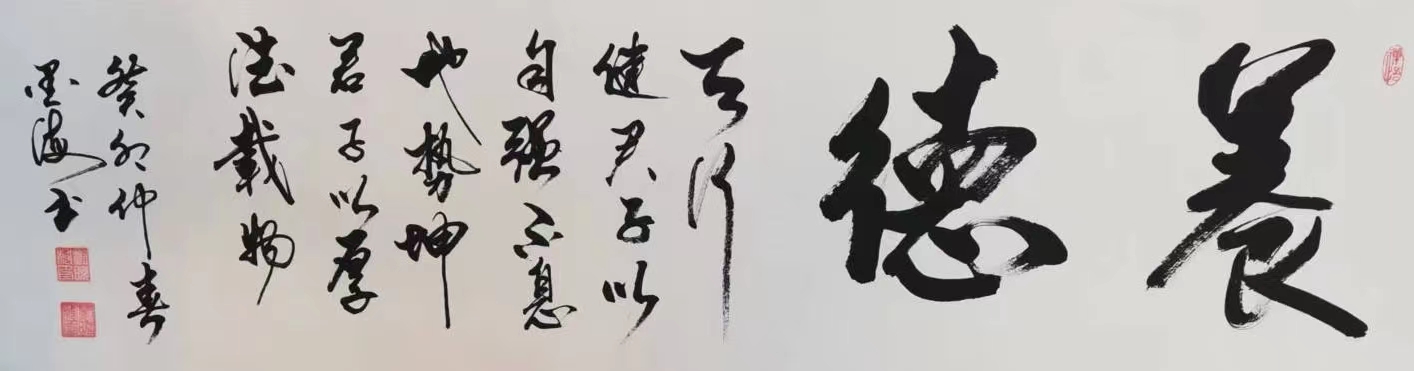 養德
天行
健君子以
自强不息
地勢坤
君子以厚
德載物
癸卯仲春
墨海书